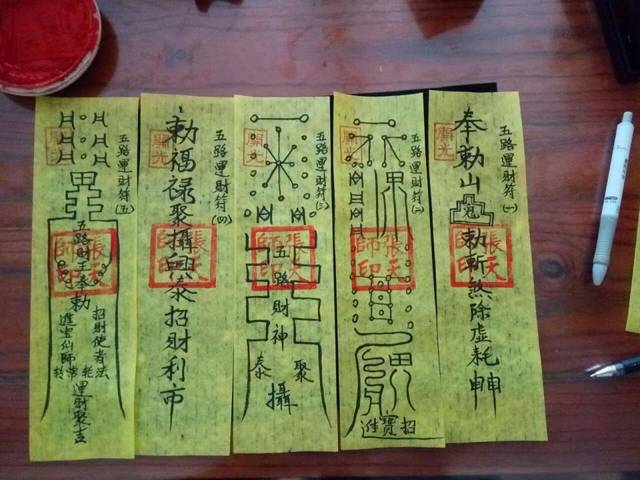 五路運財符(一)
奉勅山
勅斬煞除虛耗
開光
張天師印
五路運財符(二)
開光
張天師印
招寶進
五路運財符(三)
開光
張天師印
五路財神
聚
泰
攝
五路運財符(四)
勅福祿聚攝興泰招財利市
開光
張天師印
五路運財符(五)
開光
張天師印
五路財子奉勅
招財使者法
進寶仙師
運財聚吉